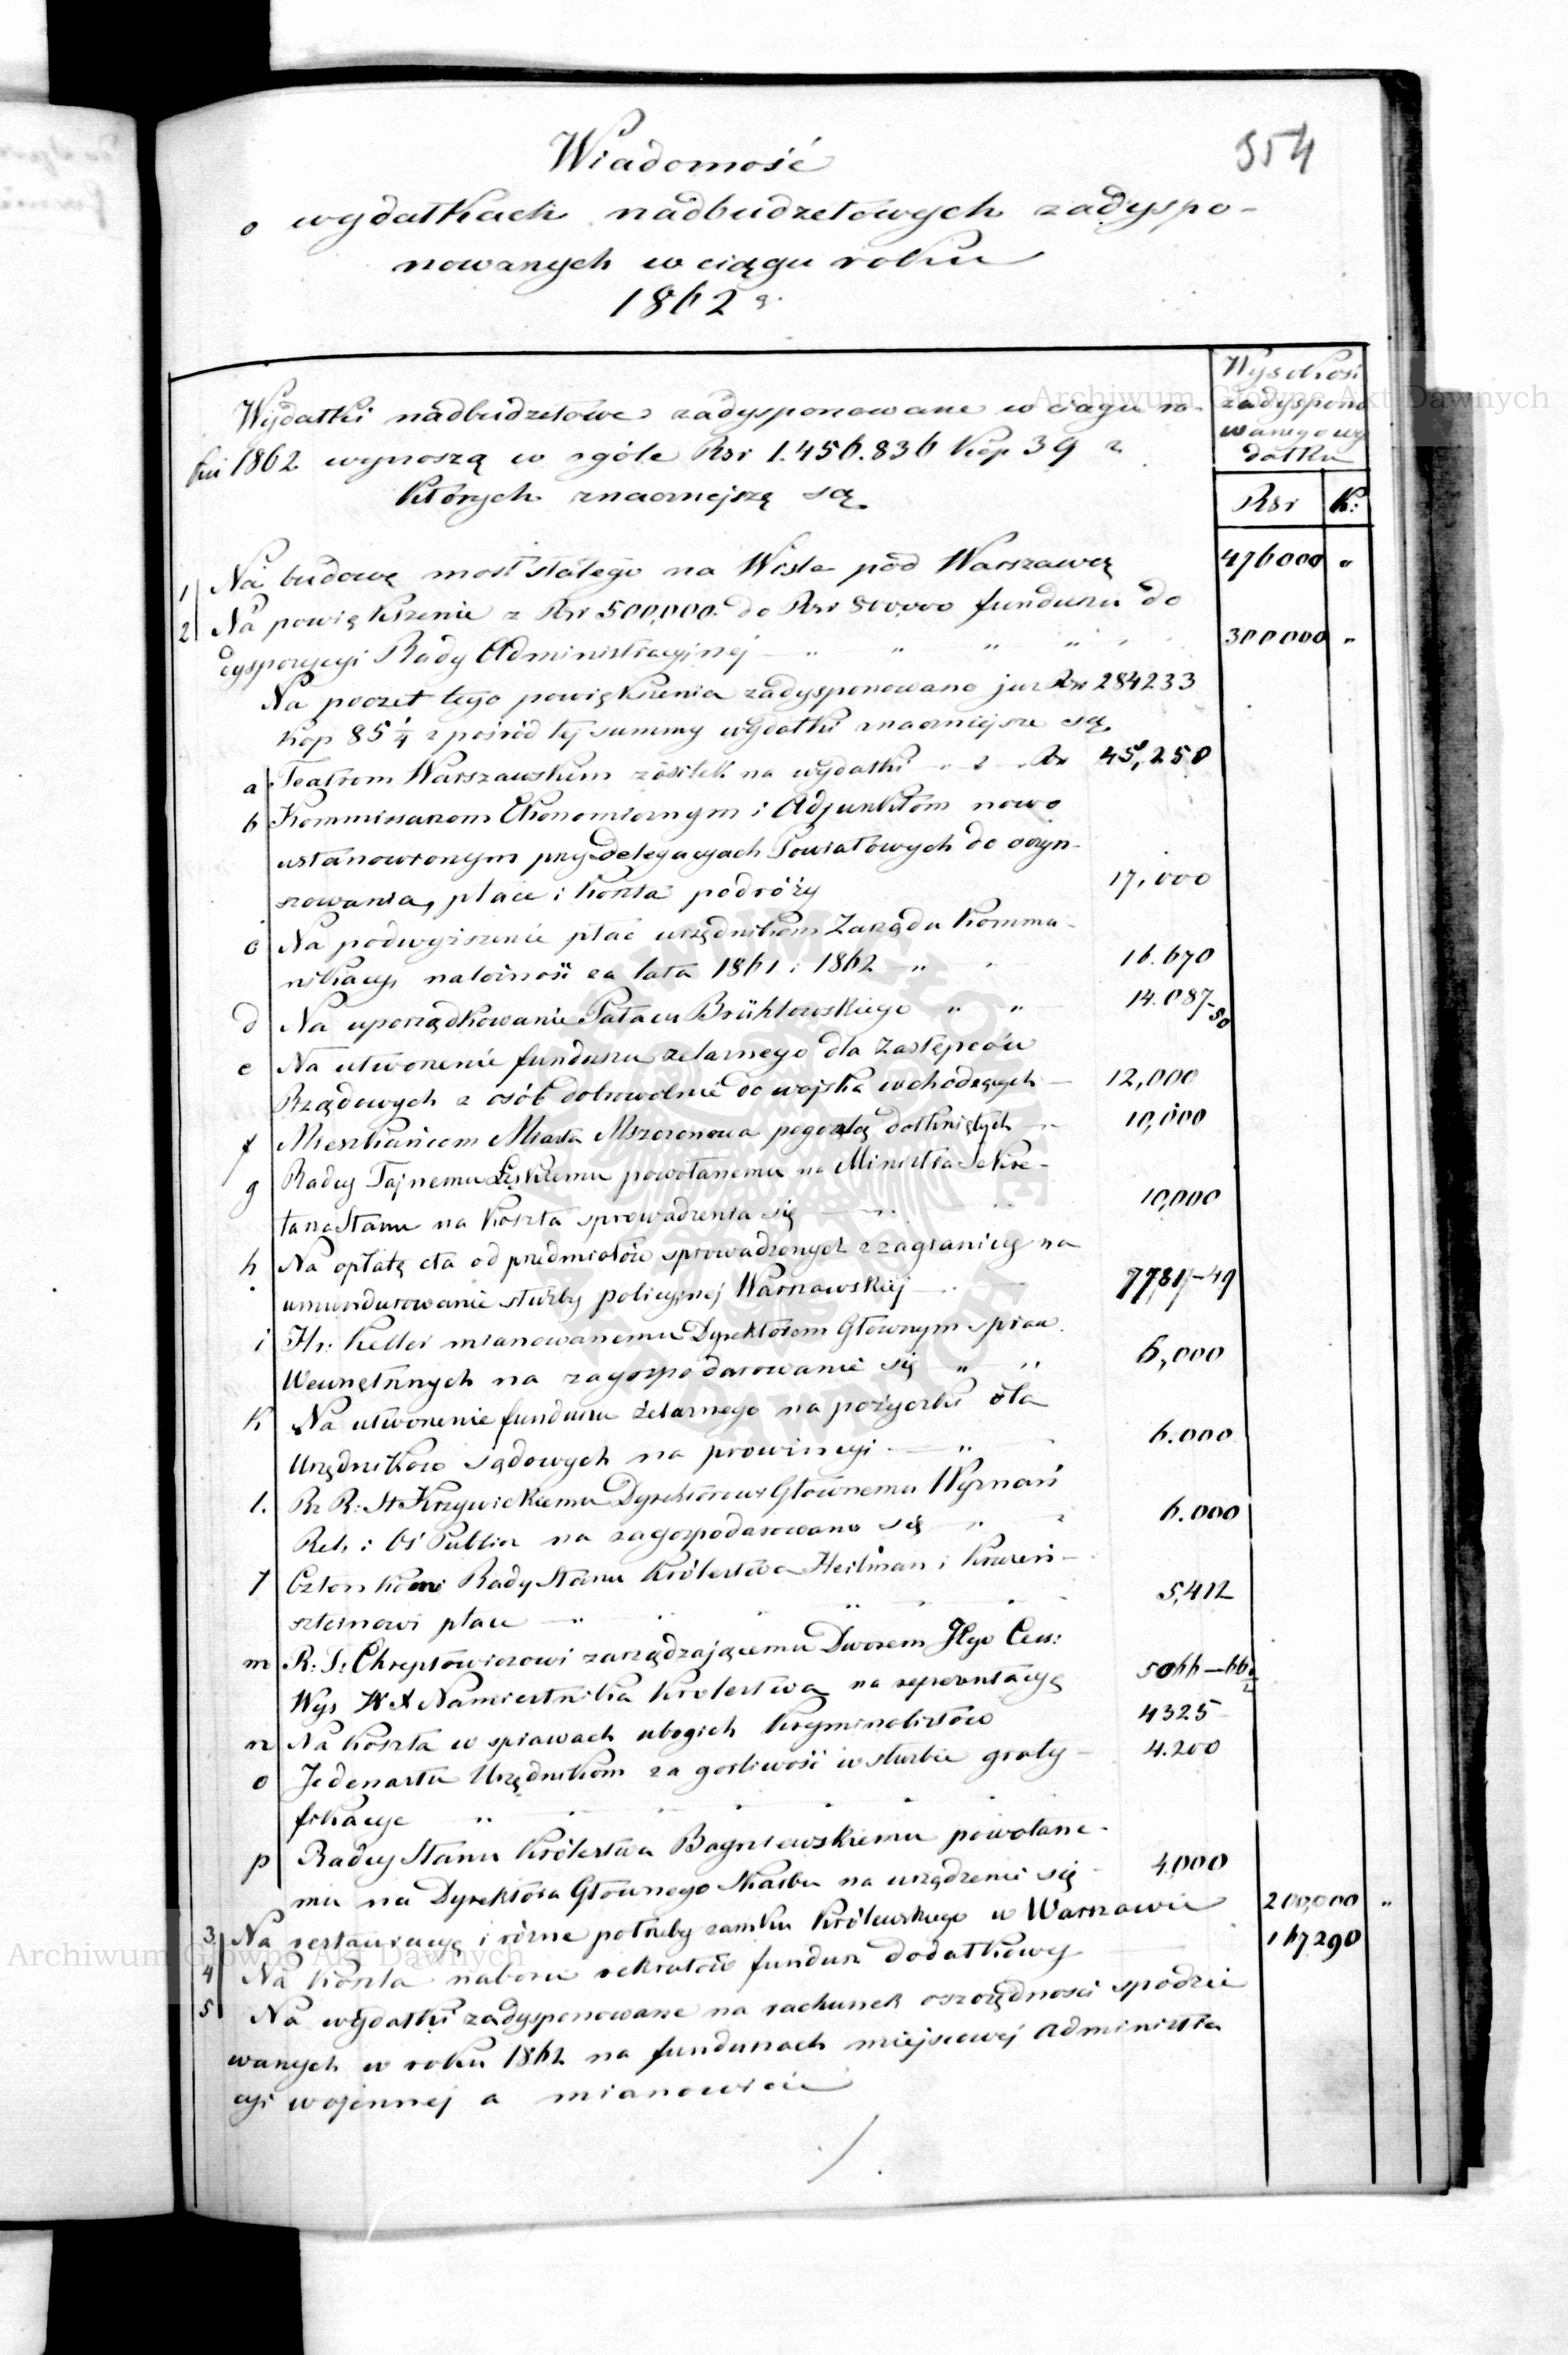 354
Wiadomość
o wydatkach nadbudżetowych zadyspo-
nowanych w ciągu roku
1862 r.
Wydatki nadbudżetowe zadysponowane w ciągu ro-
ku 1862 wynoszą w ogóle Rsr 1.456.836 kop 39 z
których znaczniejszę są
Wysokość
zadyspono
wanego wy
datku
Rsr K:
1 Na budowę most stałego na Wisle pod Warszawą 476000 "
2 Na powiększenie z Rsr 500,000 do Rsr 800,000 funduszu do
dyspozycyi Rady Administracyjnej — " " " " 300000 "
Na poczet tego powiększenia zadysponowano już Rsr 284233
kop 85 1/4 z pośród tej summy wydatki znaczniejsze są
a Teatrom Warszawskim zasiłek na wydatki Rsr 45,250
b Kommissarzom Ekonomicznym i Adjunktom nowo
ustanowionym przy Delegacyach Powiatowych do oczyn-
szowania, płace i koszta podróży 17,000
c Na podwyższenie płac urzędnikom Zarządu Kommu-
nikacyi, należność za lata 1861 i 1862 — " 16.670
d Na uporządkowanie Pałacu Brühlowskiego " " 14.087-50
e Na utworzenie funduszu żelaznego dla Zastępców
Rządowych z osób dobrowolnie do wojska wchodzących — 12,000
f Mieszkańcom Miasta Mszczonowa pogorzelą dotkniętych 10,000
g Radcy Tajnemu Łęskiemu powołanemu na Ministra Sekre-
tarza Stanu na koszta sprowadzenia się — 10,000
h Na opłatę cła od przedmiotów sprowadzonych z zagranicy na
umundurowanie służby policyjnej Warszawskiej 7781-49
i Hr: Keller mianowanemu Dyrektorem Głównym spraw
Wewnętrznych na zagospodarowanie się " " 6,000
k Na utworzenie funduszu żelaznego na pożyczki dla
Urzędników sądowych na prowincyi — " 6.000
l. Rz R: St Krzywickiemu Dyrektorowi Głównemu Wyznań
Rel: i Oś Public na zagospodarowano się 6.000
ł Członkom Rady Stanu Królestwa Heilman i Kruzen-
szternowi płace — 5,412
m R: S: Chreptowiczowi zarządzającemu Dworem JEgo Ces:
Wys W X Namiestnika Królestwa na reprezentacyę 5066-66
n Na koszta w sprawach ubogich kryminalistów 4325
o Jedenastu Urzędnikom za gorliwość w służbie graty- 4.200
fikacye "
p Radcy Stanu Królestwa Bagniewskiemu powołane-
mu na Dyrektora Głównego Skarbu na urządzenie się 4,000
3 Na restauracyę i różne potrzeby zamku Królewskiego w Warszawie 200,000 "
4 Na koszta naboru rekrutów fundusz dodatkowy 167290
5 Na wydatki zadysponowane na rachunek oszczędności spodzie
wanych w roku 1862 na funduszach miejscowej Administra
cyi wojennej a mianowicie
./.
Archiwum Główne Akt Dawnych
Archiwum Główne Akt Dawnych
ARCHIWUM GŁÓWNE AKT DAWNYCH